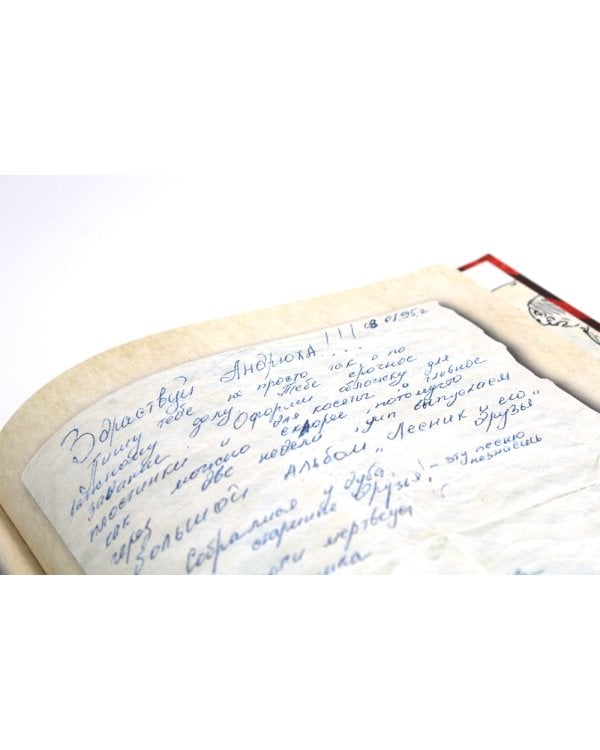 Здраствуй Андрюха!!! 03.95г
Пишу тебе не просто так, а по
важному делу. Тебе срочное
задание. Оформи обложку для
пластинки и для косеты, и главное
как можно скорее, потому что
через две недели, мп выпускаем
Большой альбом „Лесник и его
друзья"
Собрались у дуба, - эту песню
старшие друзья! незнаешь
мертвецы